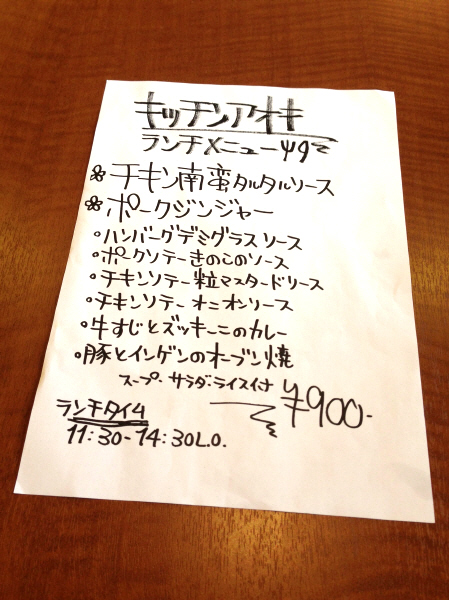 キッチンアオキ
ランチメニュー
チキン南蛮タルタルソース
ポークジンジャー
ハンバーグデミグラスソース
ポークソテーきのこのソース
チキンソテー粒マスタードソース
チキンソテーオニオンソース
牛すじとズッキーニのカレー
豚とインゲンのオーブン焼
スープ・サラダ・ライス付
¥900-
ランチタイム
11:30-14:30L.O.